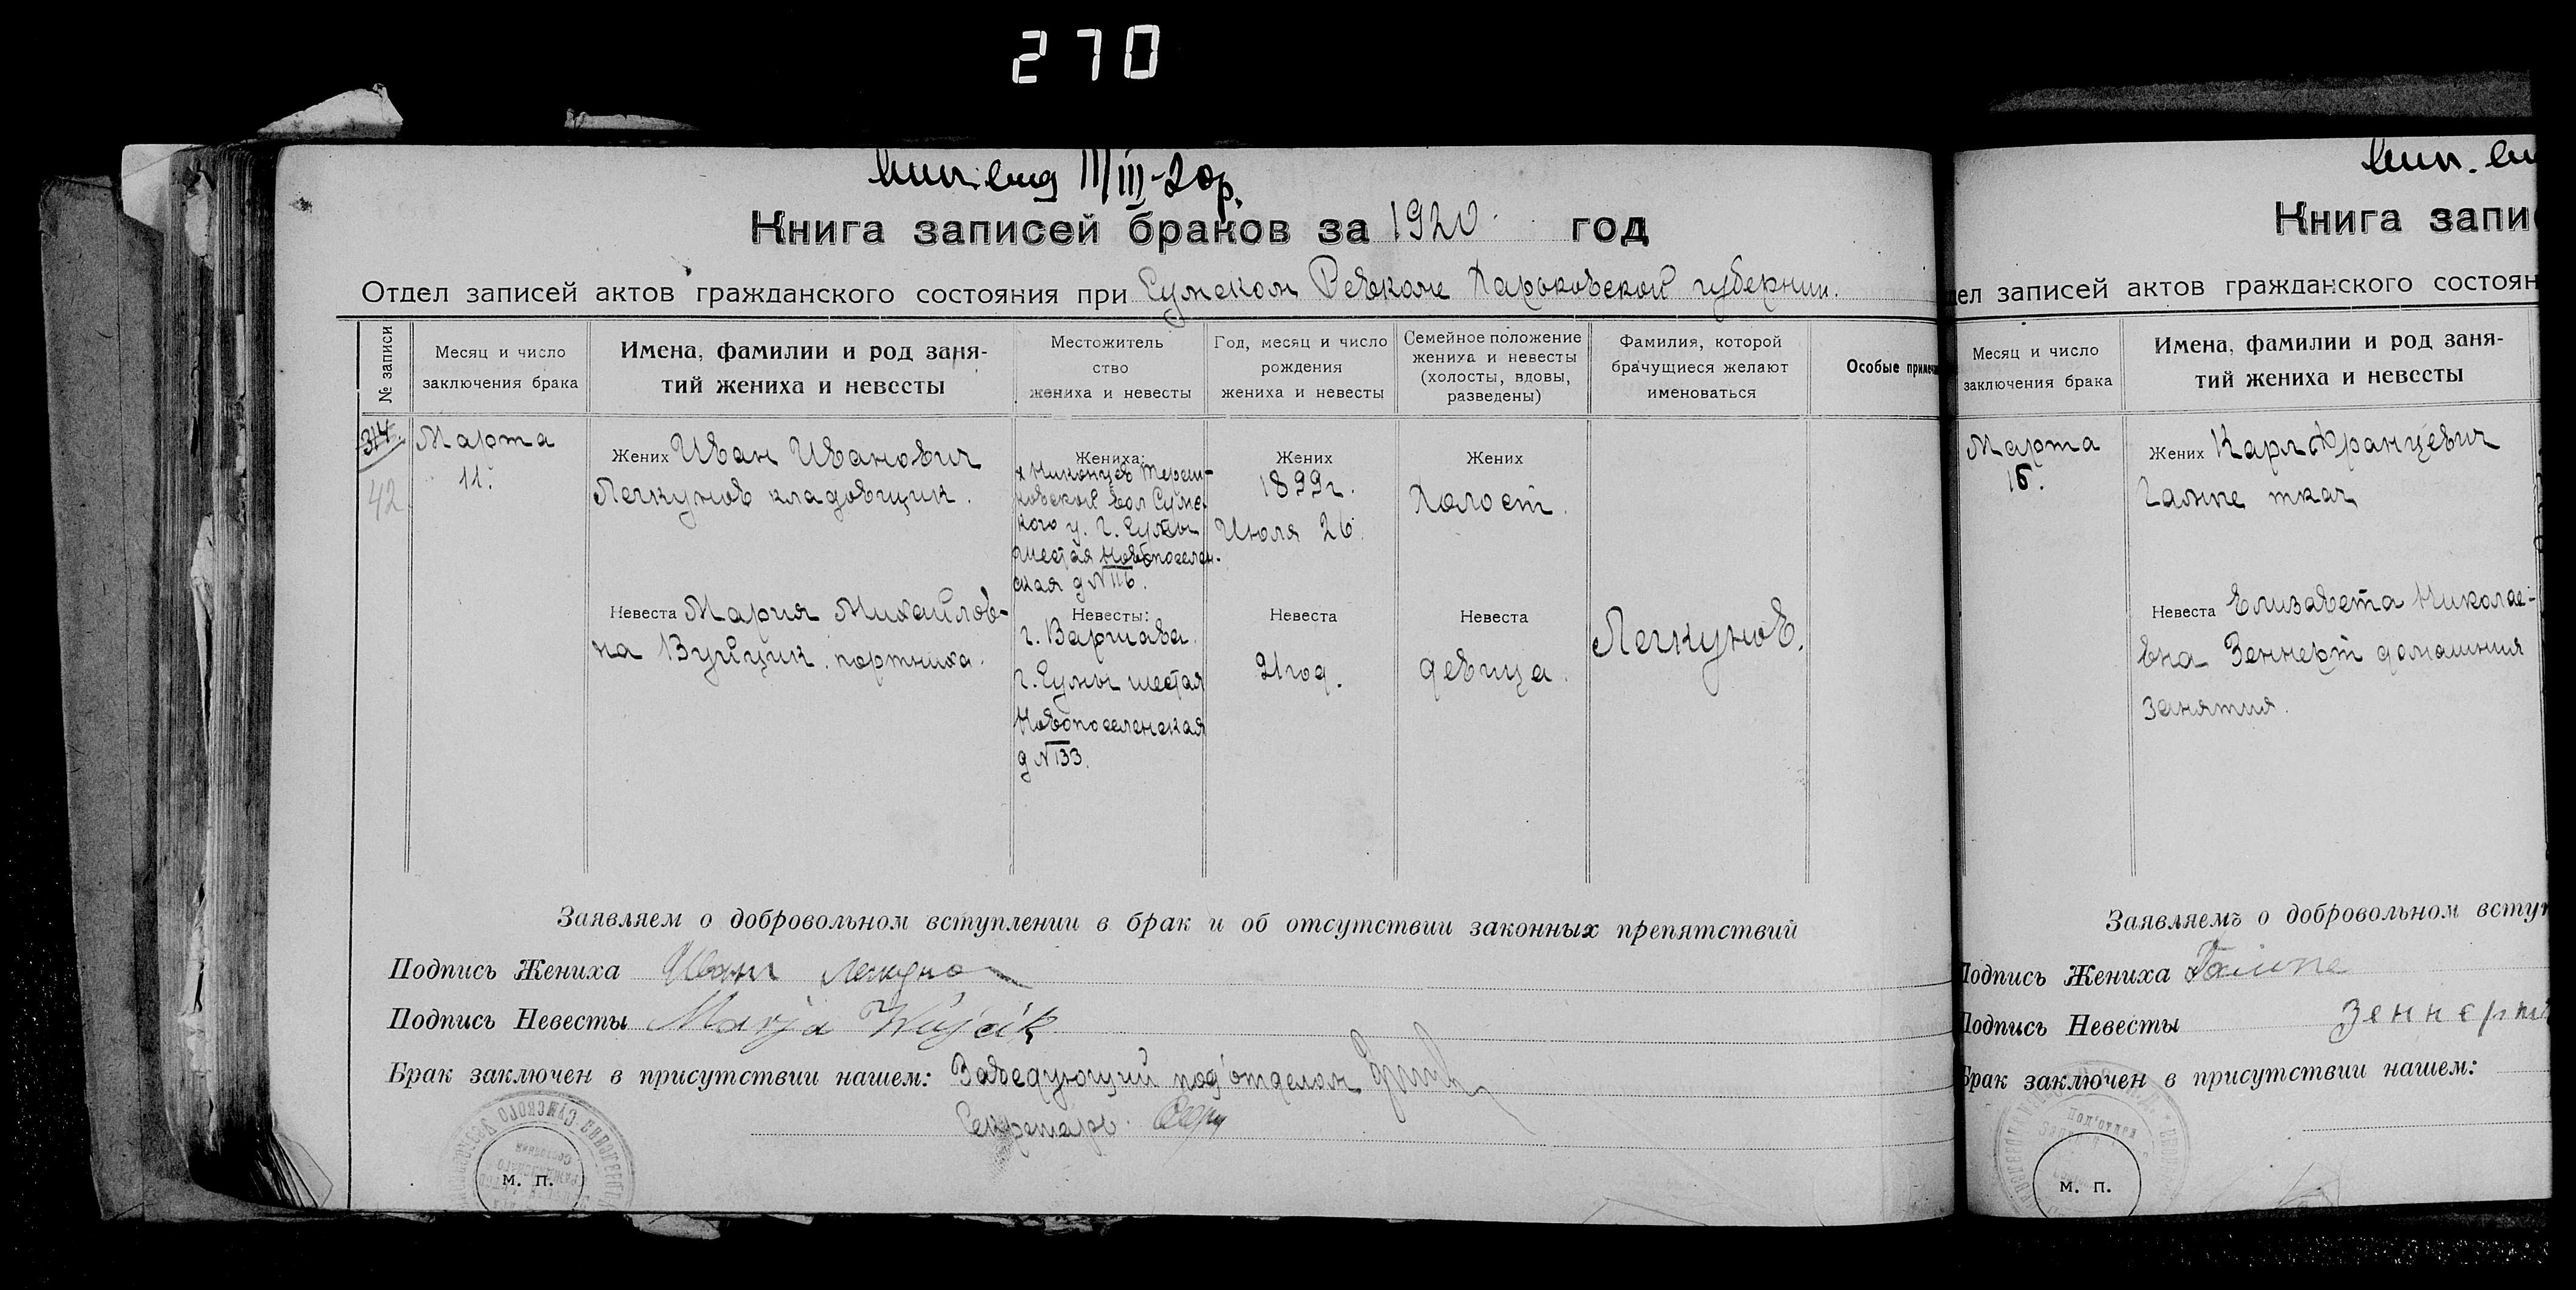 270
III/III-20р.
Книга записей браков за 1920 год
Отдел записей актов гражданского состояния при Сумском Ревкоме Харьковской губернии.
№ записи
Месяц и число заключения брака
Имена, фамилии и род заня-
тий жениха и невесты
Местожитель
ство
жениха и невесты
Год, месяц и число
рождения
жениха и невесты
Семейное положение
жениха и невесты
(холосты, вдовы,
разведены)
Фамилия, которой
брачущиеся желают
именоваться
Особые
314.
42
Марта
11.
Жених Иван Иванович
Легкунов кладовщик.
Жениха:
х Никонцев Тереш-
ковской вол Сумс
кого у. г. Сумы
шестая Новопоселен-
ская д N 116.
Жених
1899г.
Июля 26.
Жених
Холост.
Невеста Мария Михайлов-
на Вуйцик портниха.
Невесты:
г. Варшава.
г. Сумы шестая
Новопоселенская
д N 133.
Невеста
21 год.
Невеста
девица.
Легкунов.
Заявляем о добровольном вступлении в брак и об отсутствии законных препятствий
Подпись Жениха Иван Легкунов
Подпись Невесты Marja Wujcik
Брак заключен в присутствии нашем: Заведующий под'отделом
Секретарь
м. п.
Книга запи
записей актов гражданского состоян
Месяц и число
заключения брака
Имена, фамилии и род заня-
тий жениха и невесты
Марта
15.
Жених Карл Францевич
Галпе ткач
Невеста Елизавета Николае-
вна Зеннерт домашния
занятия.
Заявляемъ о добровольном всту
Подпись Жениха Галпе
Подпись Невесты Зеннерт
Брак заключен в присутствии нашем:
м. п.